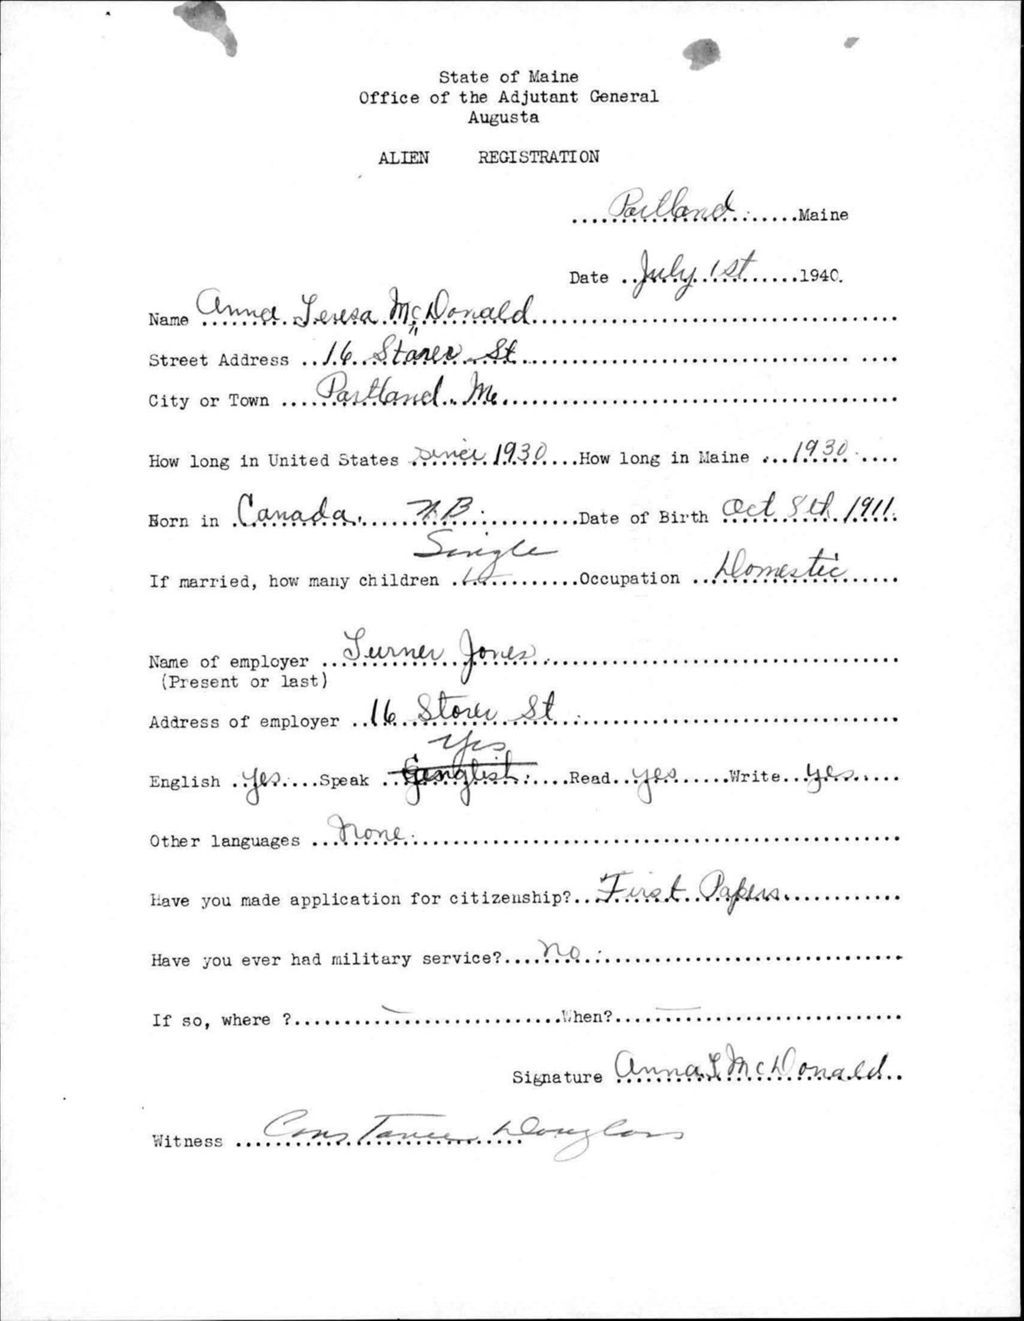 State of Maine
Office of the Adjutant General
Augusta
ALIEN REGISTRATION
Portland Maine
Date July 1st 1940.
Name Anna Teresa McDonald
Street Address 16 Storer St
City or Town Portland, Me.
How long in United States since 1930 How long in Maine 1930
Born in Canada, N.B. Date of Birth Oct 8th 1911.
Single
If married, how many children Occupation Domestic
Name of employer Turner Jones
(Present or last)
Address of employer 16 Storer St
Yes
English yes Speak English Read yes Write yes
Other languages None
Have you made application for citizenship? First Papers
Have you ever had military service? no
If so, where ? — When? —
Signature Anna T McDonald
Witness Constance Douglass